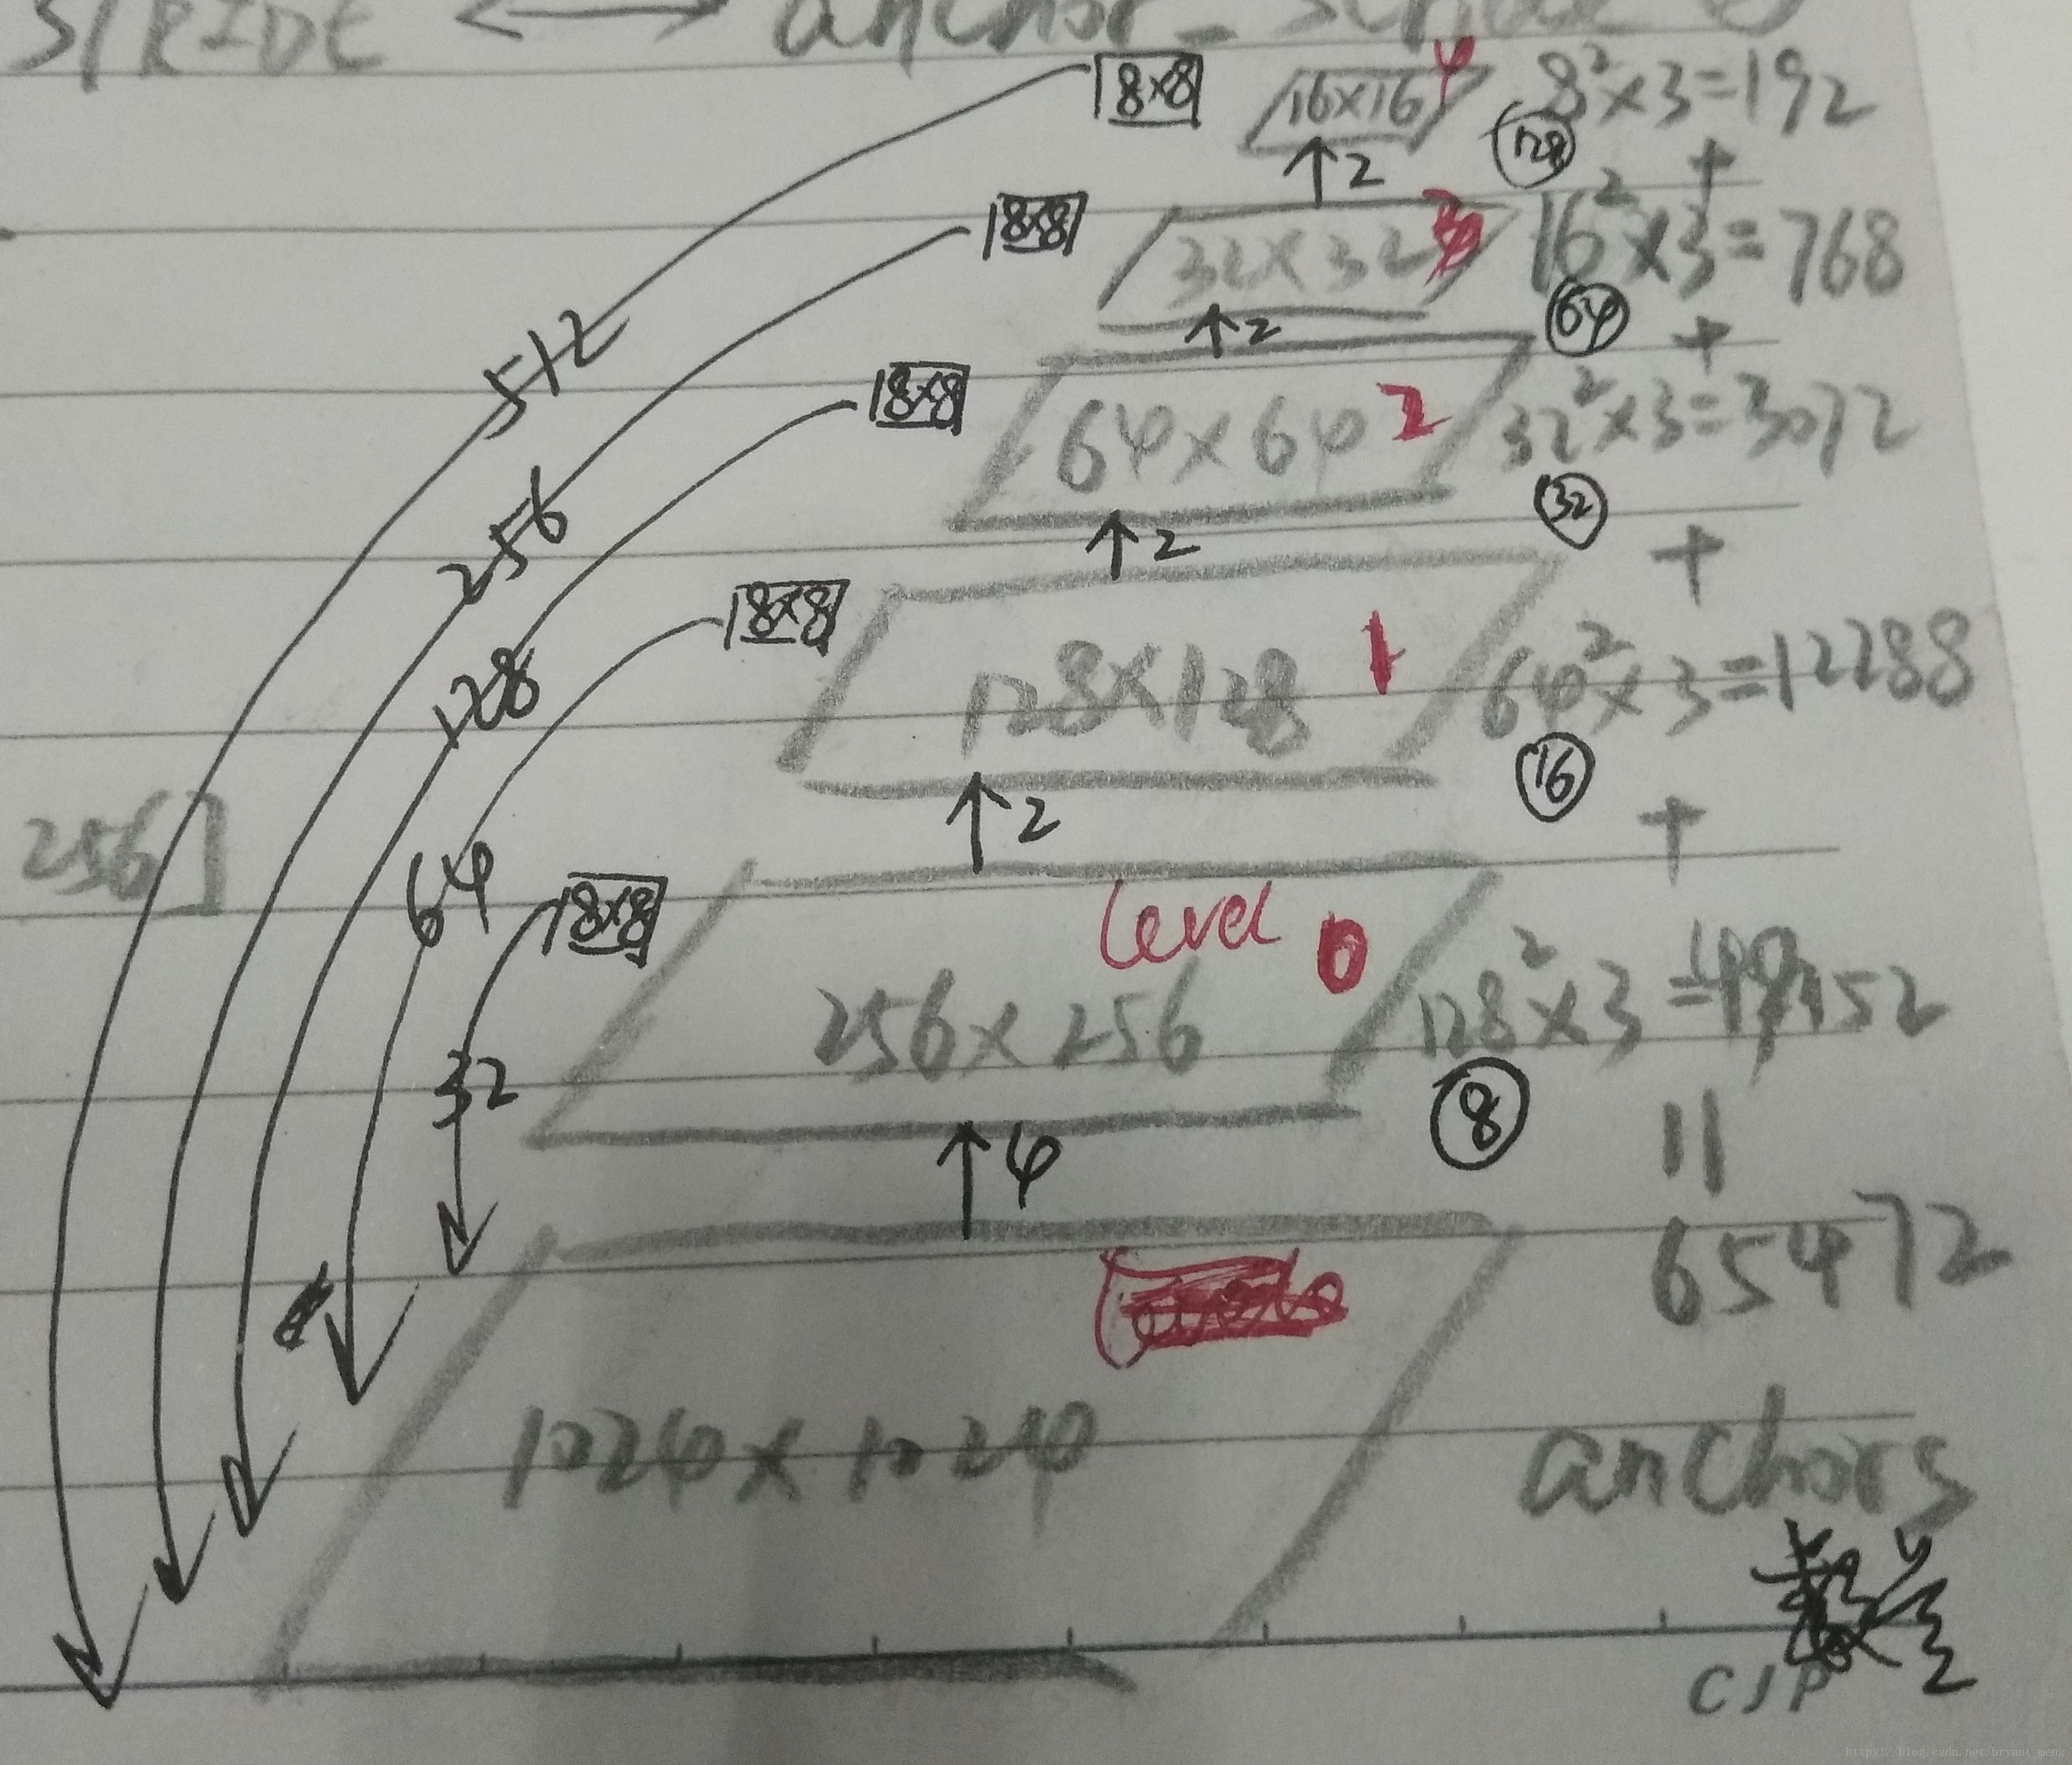 STRIDE <—> anchor_
8×8 16×16 4 8²×3=192
↑2 128 +
8×8 32×32 3 16²×3=768
↑2 64 +
512
8×8 64×64 2 32²×3=3072
256 ↑2 32 +
8×8 128×128 1 64²×3=12288
128 ↑2 16 +
256]
64 8×8 level 0
256×256 128²×3=49152
32 ↑4 8 =
65472
1024×1024 anchors
数量
CJP
https://blog.csdn.net/bryant_meng